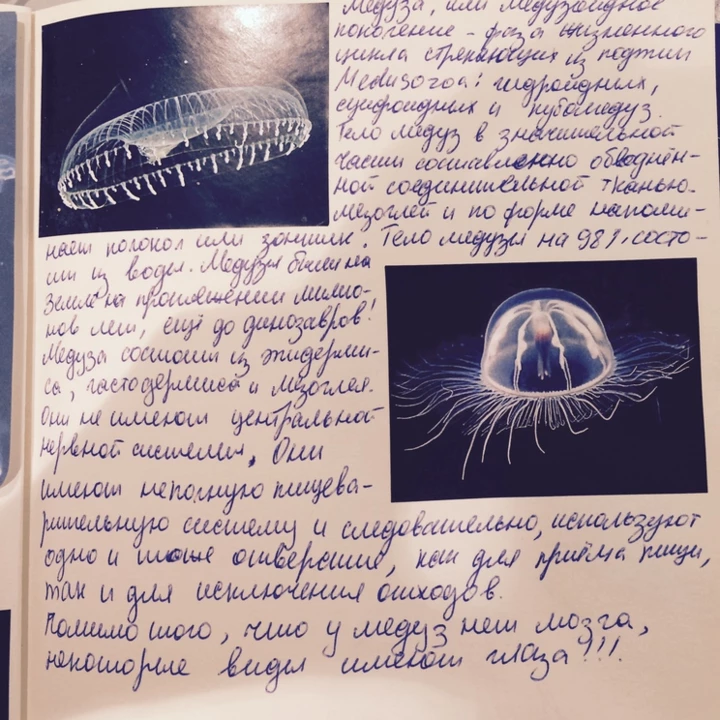 Медуза, или медузоидное
поколение - фаза жизненного
цикла стрекающих из подтип
Medusozoa: гидроидных,
сцифоидных и кубомедуз.
Тело медуз в значительной
части составленно обводнён-
ной соединительной тканью-
мезоглей и по форме напоми-
нает колокол или зонтик. Тело медузы на 98% состо-
ит из воды. Медузы были на
Земле на протяжении милио-
нов лет, ещё до динозавров!
Медуза состоит из эпидерми-
са, гастодермиса и мезоглея.
Они не имеют центральной
нервной системы. Они
имеют неполную пищева-
рительную систему и следовательно, используют
одно и тоже отверстие, как для приёма пищи,
так и для исключения отходов.
Помимо того, что у медуз нет мозга,
некоторые виды имеют глаза!!!